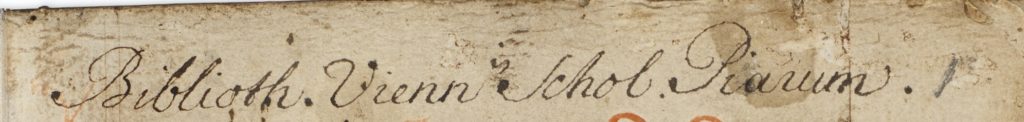 Biblioth. Vienn.ˢ Schol. Piarum. 1